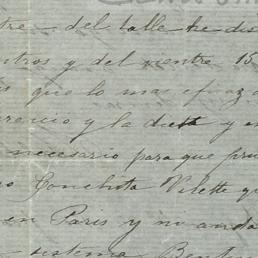 tre del talle he dis
ntros y del vientre 15
que lo mas eficaz
y la dieta y
necesario para que pru
Conchita Vilette q
en Paris y no anda
sistema